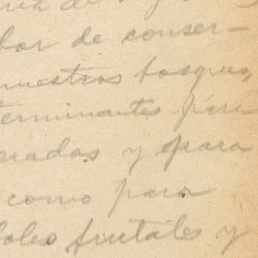 lor de conser-
nuestros bosques,
terminantes para
eradas y para
como para
boles frutales y